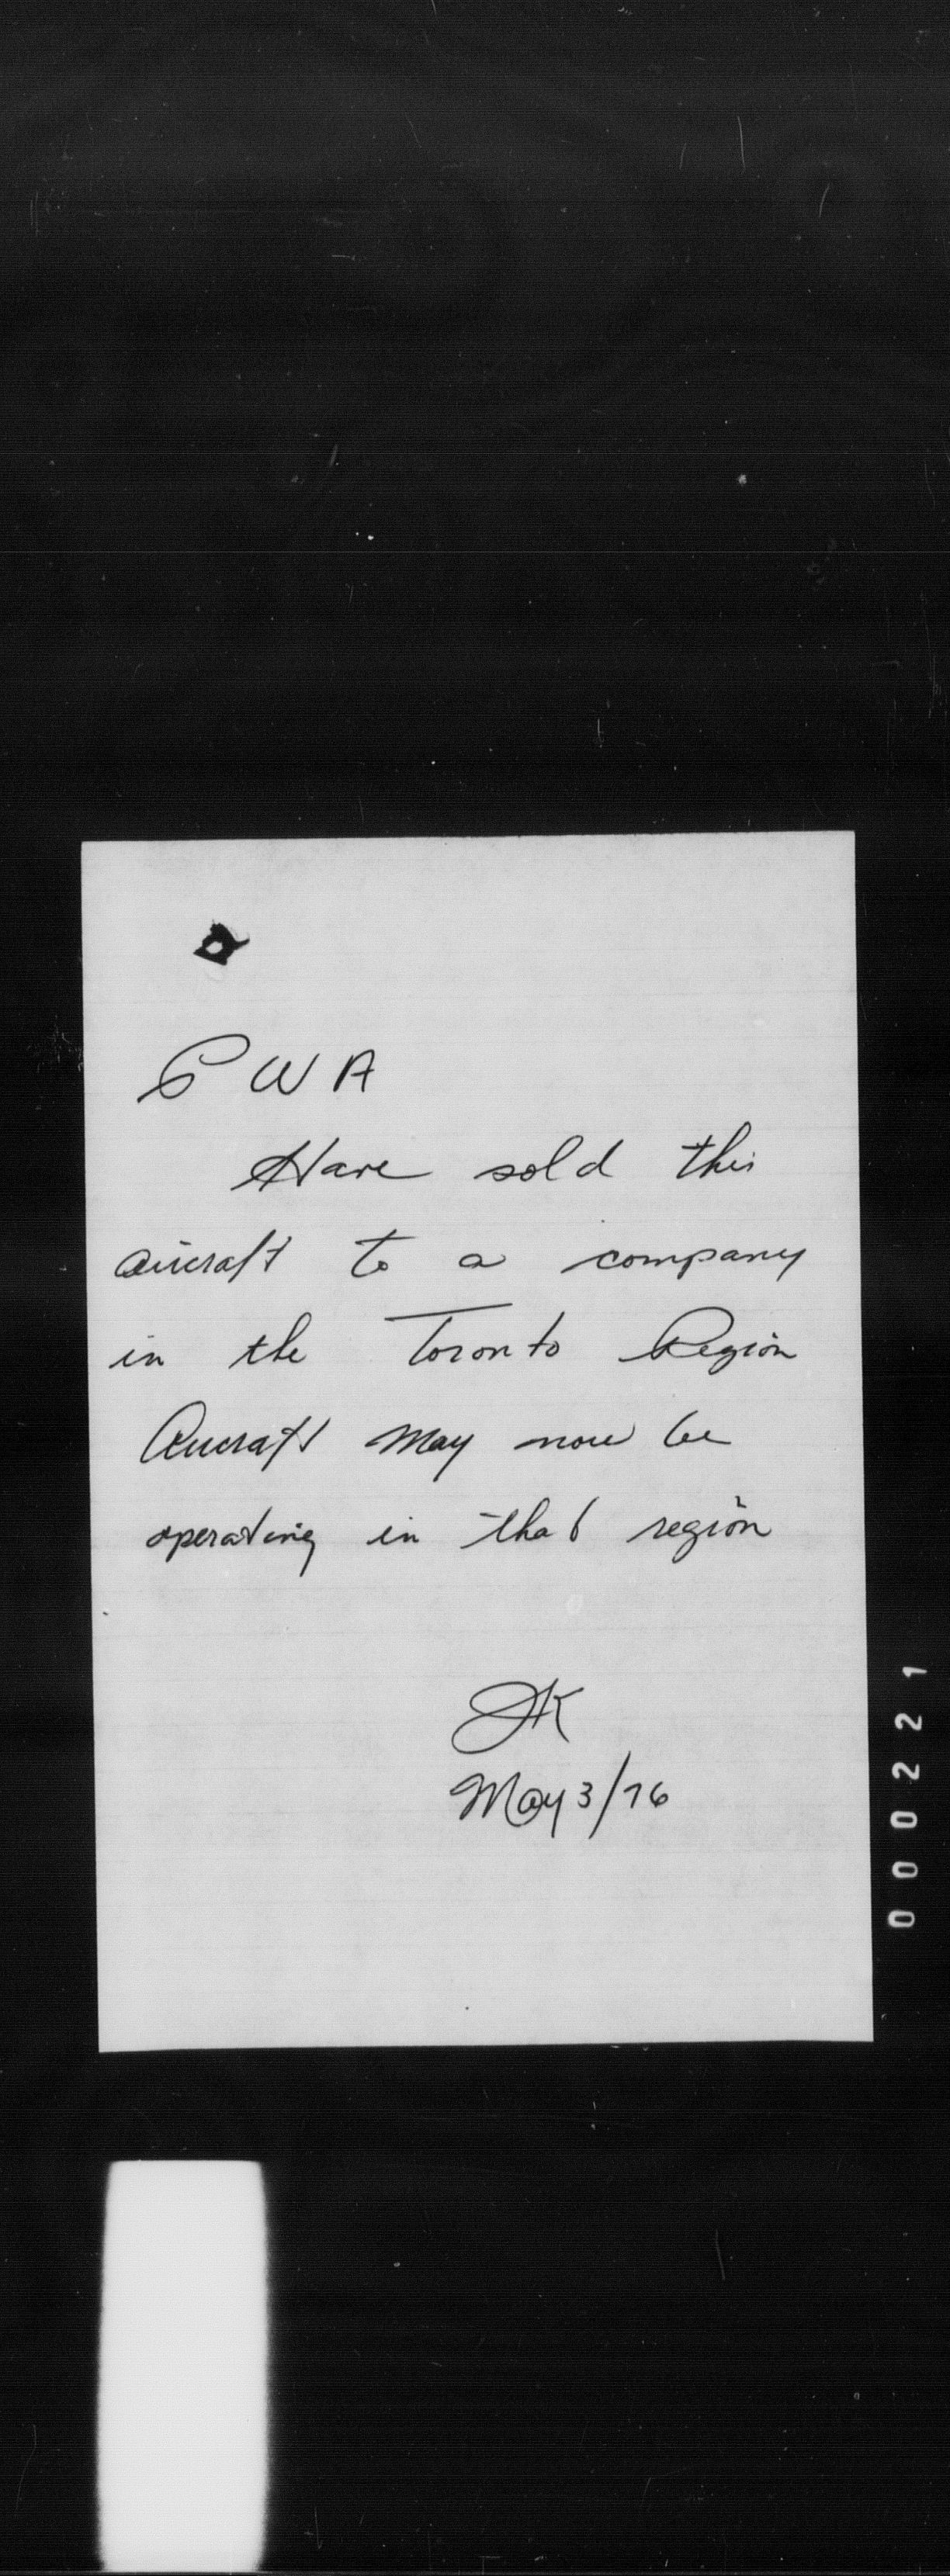 PWA
Have sold this
aircraft to a company
in the Toronto Region
Aircraft may now be
operating in that region
JK
May 3/76
000221